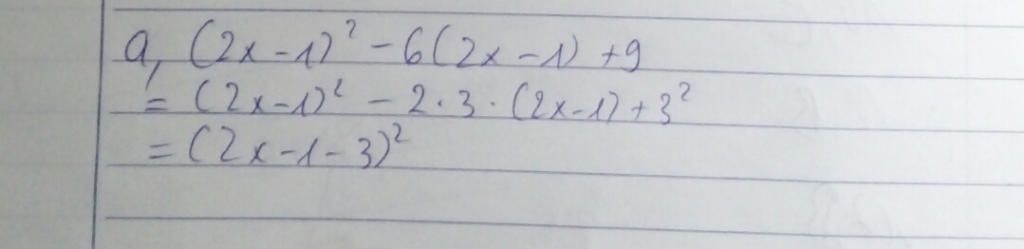 a, (2x-1)² - 6(2x-1) + 9
= (2x-1)² - 2.3.(2x-1) + 3²
= (2x-1-3)²